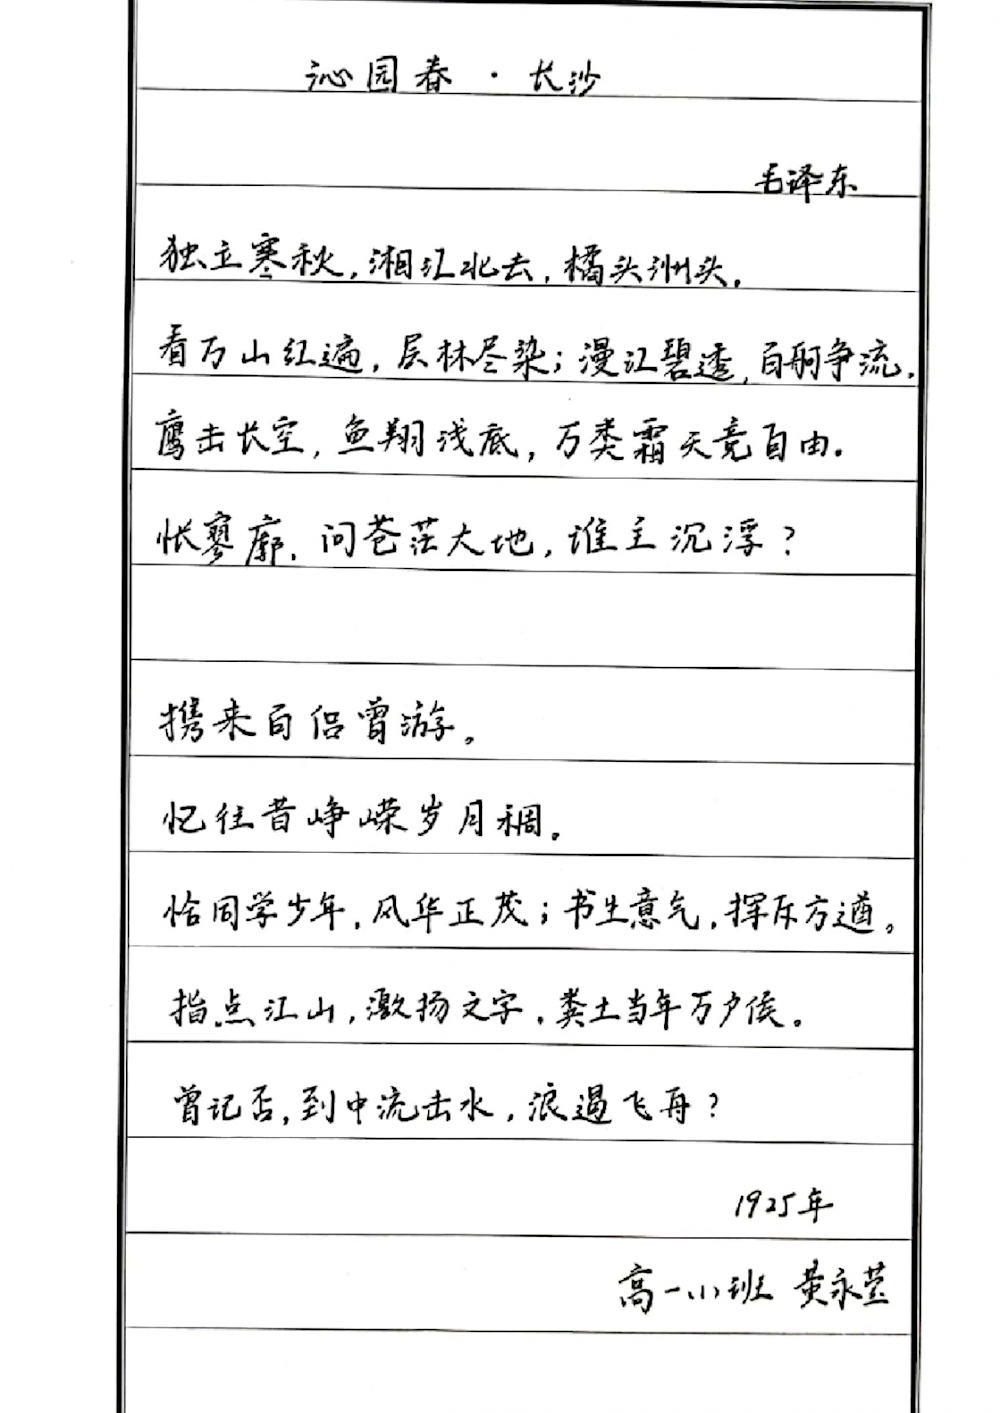 沁园春·长沙
毛泽东
独立寒秋,湘江北去,橘头洲头.
看万山红遍,层林尽染;漫江碧透,百舸争流.
鹰击长空,鱼翔浅底,万类霜天竞自由.
怅寥廓.问苍茫大地,谁主沉浮?
携来百侣曾游。
忆往昔峥嵘岁月稠。
恰同学少年,风华正茂;书生意气,挥斥方遒。
指点江山,激扬文字.粪土当年万户侯。
曾记否,到中流击水,浪遏飞舟?
1925年
高一(1)班 黄永莹